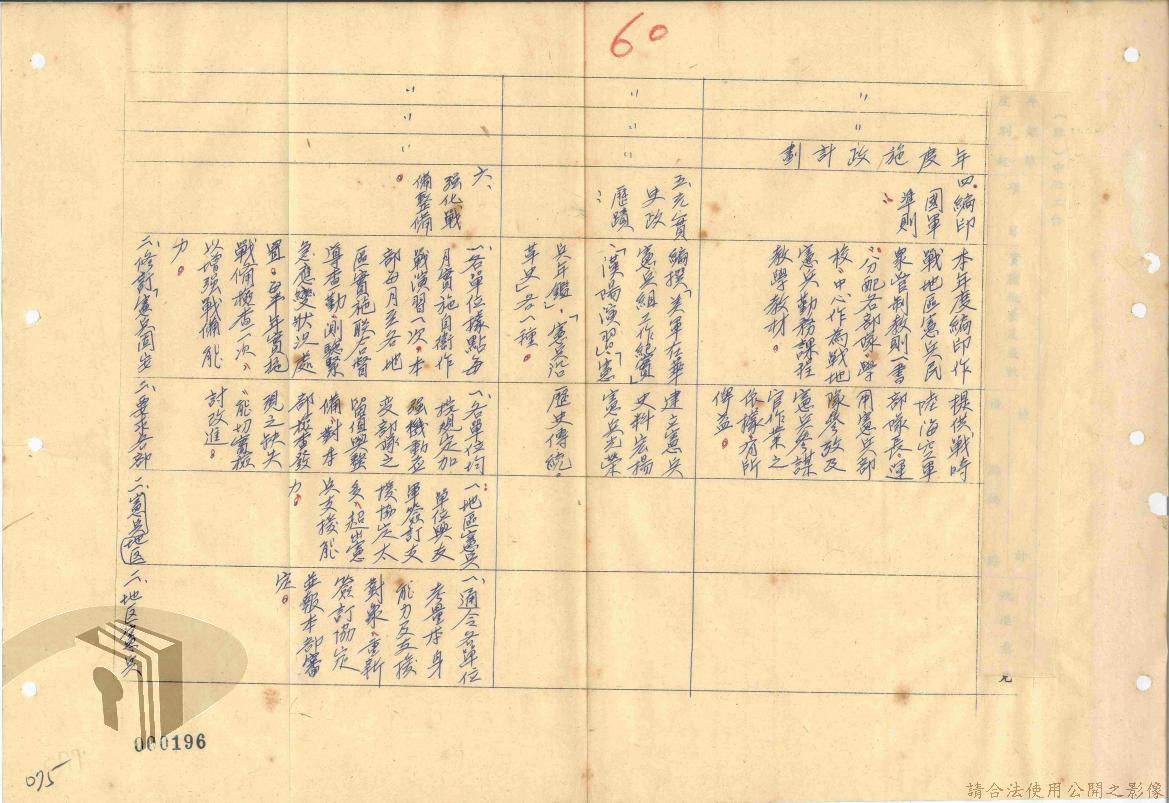 60
〃
〃
〃
年度施政計劃
四、編印
國軍
準則
本年度編印作
戰地區憲兵民
眾管制教則一書
分配各部隊、學
校、中心作為戰地
憲兵勤務課程
教學教材。
提供戰時
陸海空軍
部隊長、運
用憲兵部
隊參考及
憲兵參謀
官作業之
依據、有所
俾益。
〃
〃
〃
五、充實
史政
歷蹟
編撰「美軍在華
憲兵組工作紀實」
「漢陽演習」「憲
兵年鑑」、「憲兵沿
革史」各一種
建立憲兵
史料宏揚
憲兵光榮
歷史傳統。
〃
〃
〃
六、
强化戰
備整備
一、各單位據點每
月實施自衛作
戰演習一次、本
部每月至各地
區實施联合督
導查勤、測驗緊
急應變狀況處
置、每半年實施
戰備檢查一次
以增强戰備能
力。
二、修訂「憲兵固安
一、各單位均
按規定加
强機動應
變部隊之
留值與强
備、對本
部檢查發
現之缺失
能切實檢
討改進。
二、要求各部
一、地區憲兵
單位與友
軍簽訂支
援協定太
多、超出憲
兵支援能
力。
二、憲兵地区
一、通令各單位
考量本身
能力及支援
對象、重新
簽訂協定
並報本部審
定。
二、地区憲兵
000196
075
請合法使用公開之影像